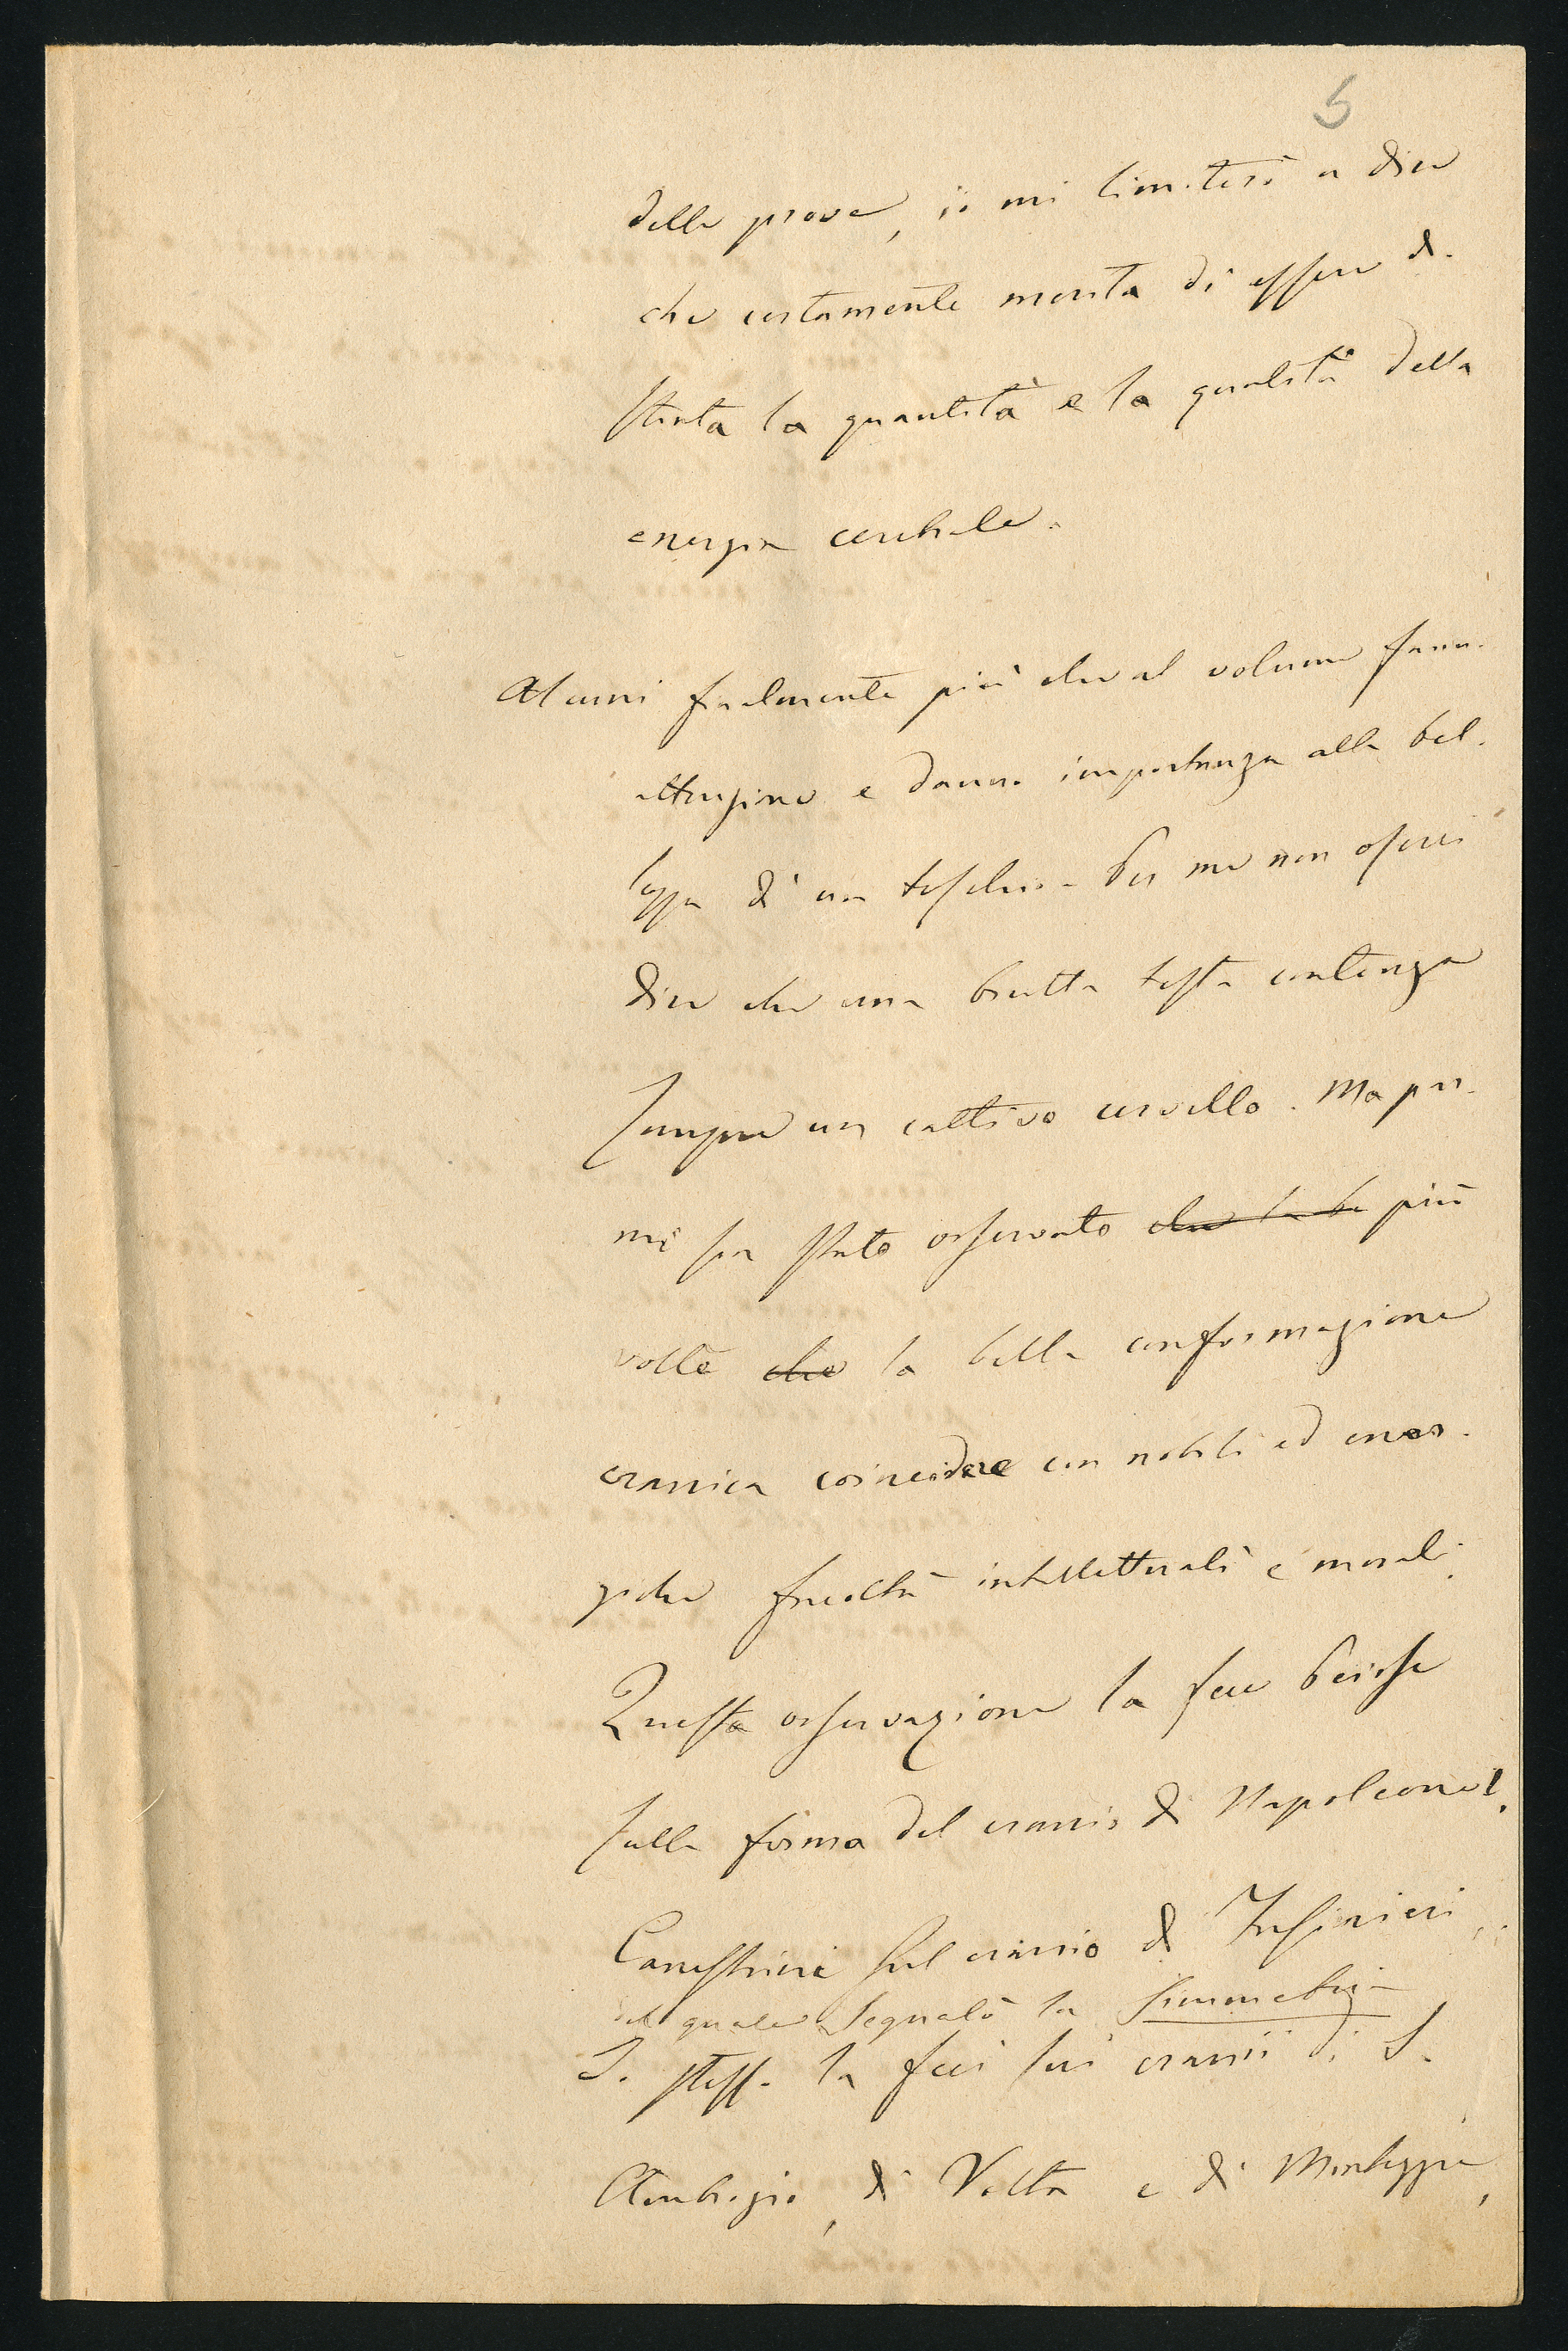 5
delle prove, io mi limiterò a dire
che certamente merita di essere di-
stinta la quantità e la qualità della
energia cerebrale.
Alcuni finalmente più che al volume fanno
attenzione e danno importanza alla bel-
lezza di un teschio. Per me non oserei
dire che una brutta testa contenga
sempre un cattivo cervello. Ma pur
mi fu stato osservato che la be più
volte che la bella conformazione
cranica coincidere con nobili ed ener-
giche facoltà intellettuali e morali.
Questa osservazione la fece
sulla forma del cranio di Napoleone I.
Canestrini sul cranio di
del quale segnalò la simmetria
Io stesso la feci sui cranii di S.
Ambrogio, di Volta e di Monteggia,